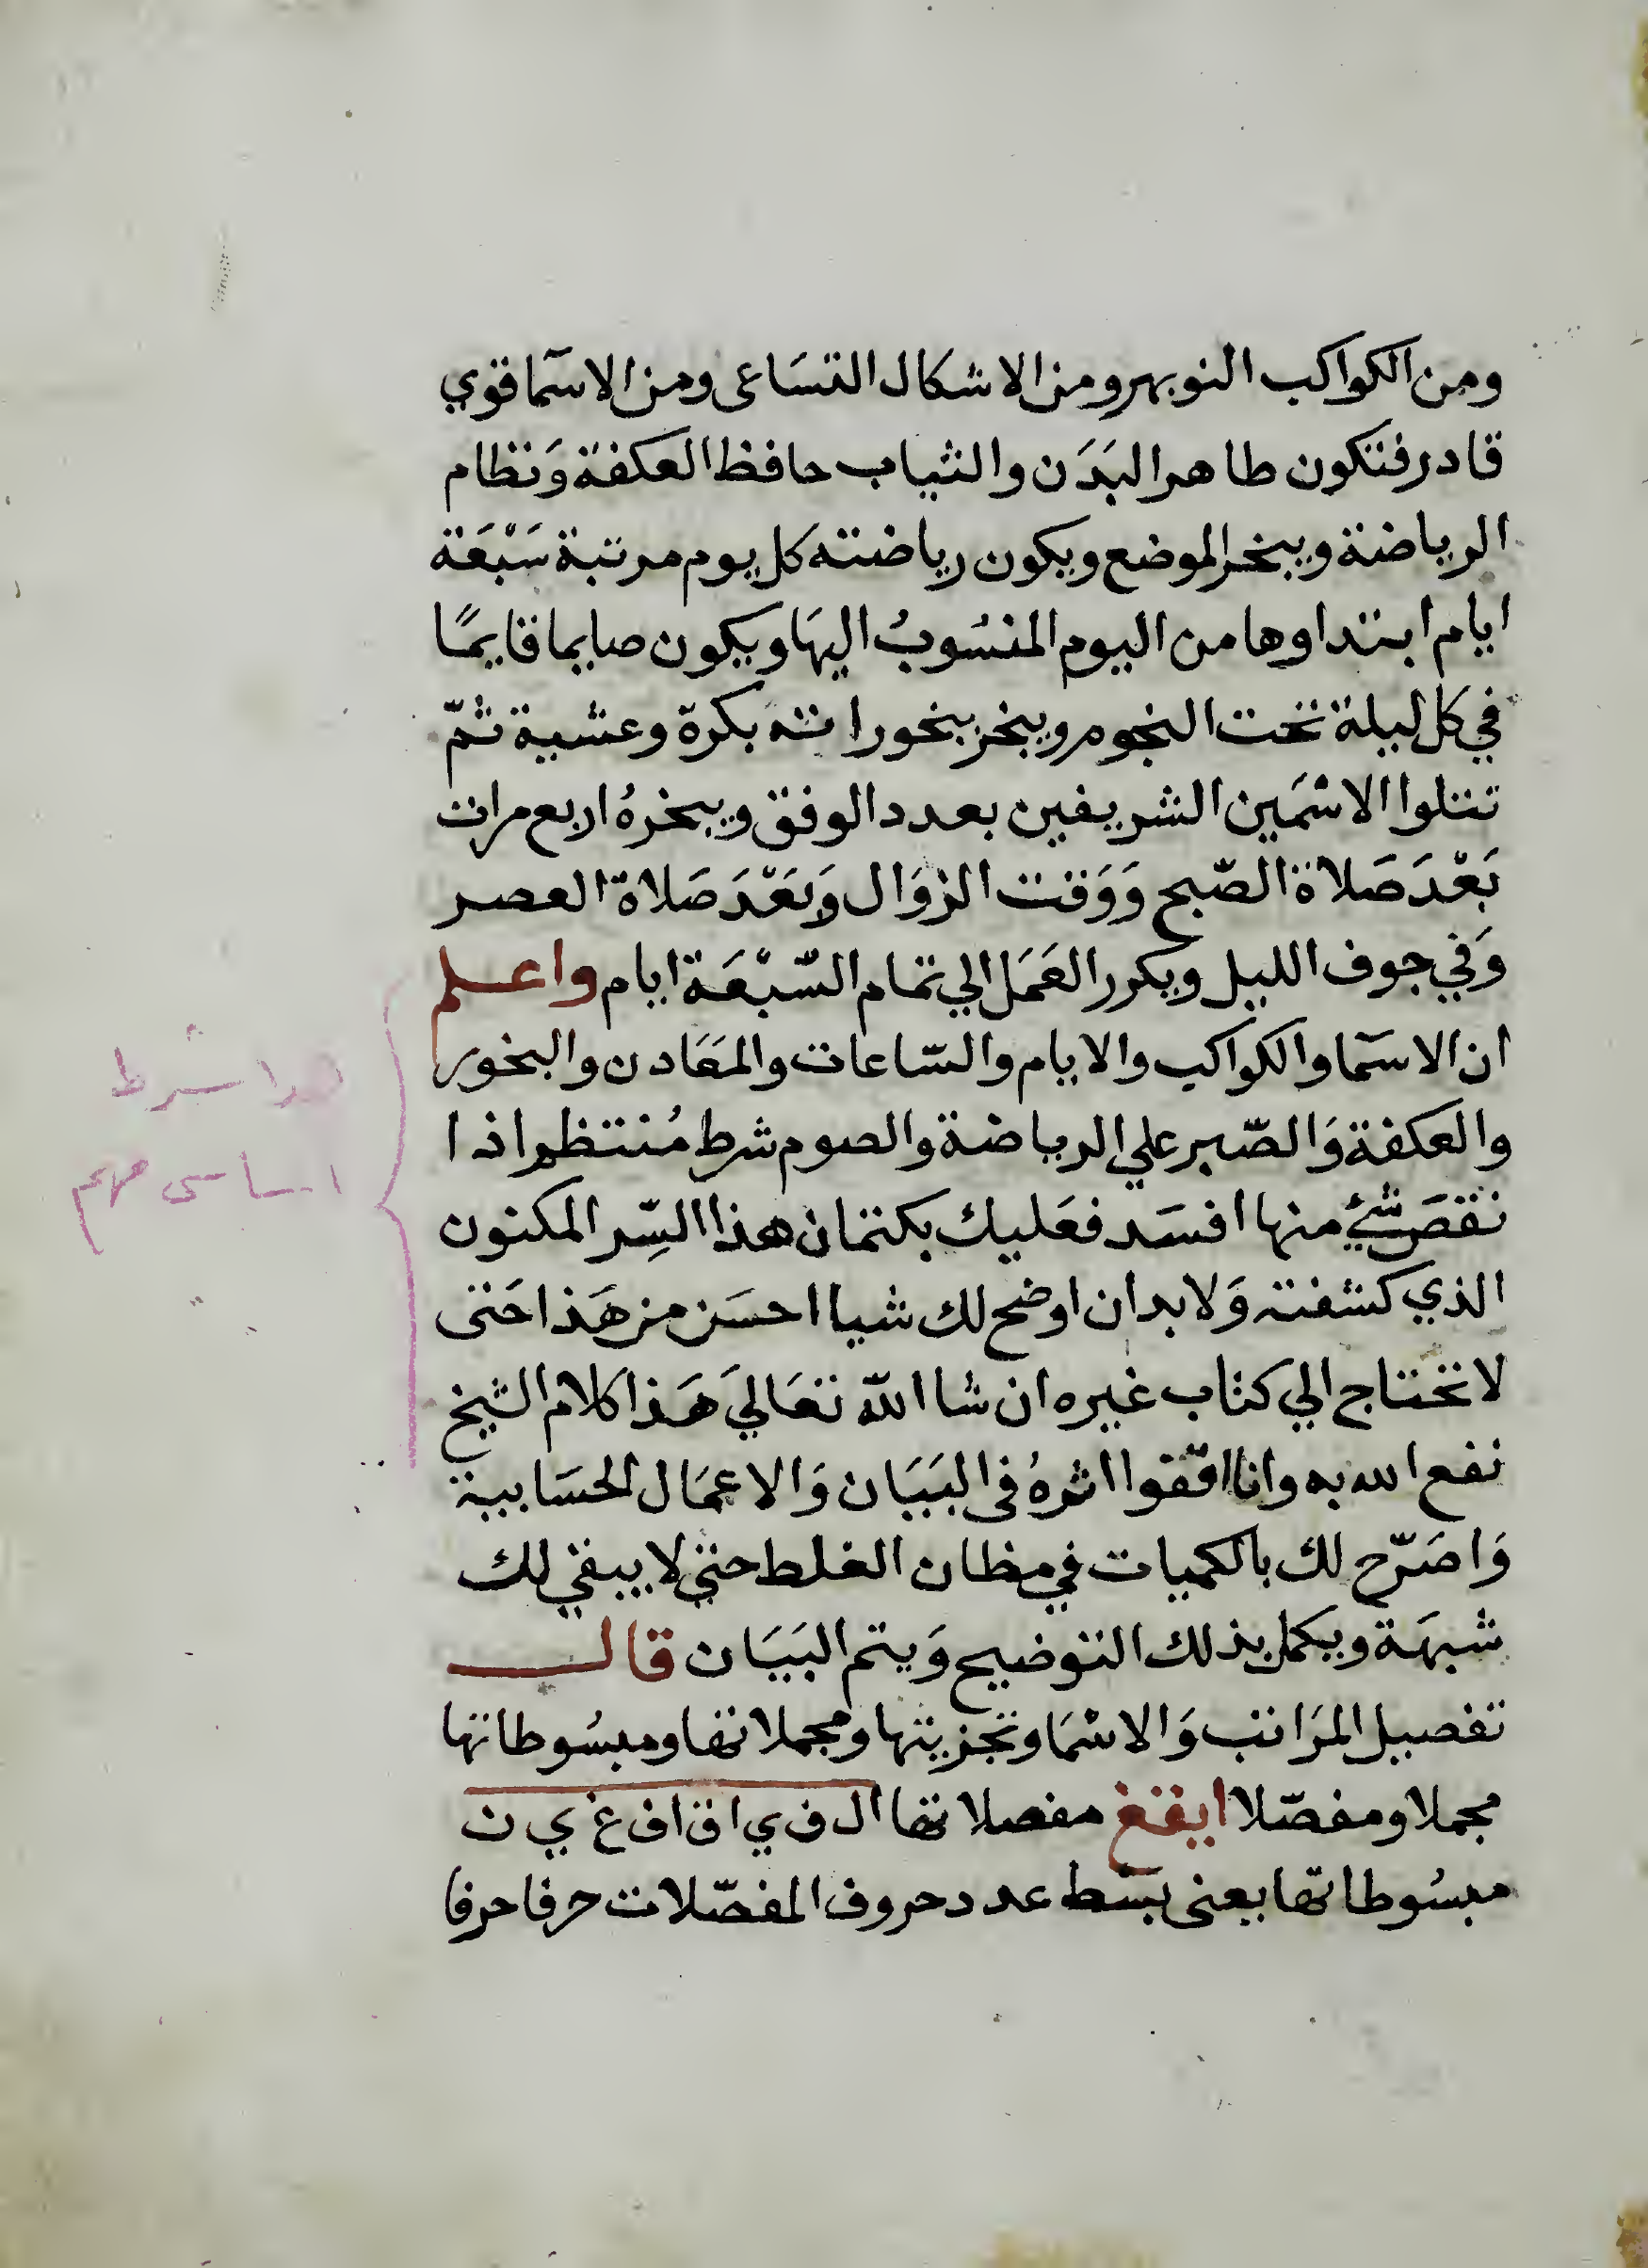 ومن الكواكب النوبهر ومن الاشكال التساعى ومن الاسمآ قوي
قادر فتكون طاهر البَدَن والثياب حافظ العكفة وَنظام
الرياضة ويبخر الموضع ويكون رياضته كل يوم مرتبة سَبْعَة
ايام ابتداوها من اليوم المنسُوبُ اليهَا ويكون صايما قايمًا
في كل ليلة تحت النجوم ويبخر ببخوراته بكرة وعشية ثمّ
تتلوا الاسْمَين الشريفين بعدد الوفق ويبخرهُ اربع مرات
بَعْدَ صَلاة الصّبح وَوَقت الزوَال وَبَعْدَ صَلاة العصر
وَفي جوف الليل ويكرر العَمَل الي تمام السّبْعَة ايام واعلم
ان الاسمآ والكواكب والايام والسّاعات والمعَادن والبخور
والعكفة وَالصّبر علي الرياضة والصوم شرط مُنتظم اذا
نقصَ شئ منها افسَد فعَليك بكتمان هذا السِّر المكنون
الذي كشفته وَلابد ان اوضح لك شيا احسَن من هَذا حَتى
لا تحتاج الي كتاب غيره ان شا الله تعَالي هَذا كلام الشيخ
نفع الله به وانا اقفوا اثرهُ فى البَيَان وَالاعمَال الحسَابية
وَاصَرّح لك بالكميات في مظان الغلط حتي لا يبقي لك
شبهَة ويكمل بذلك التوضيح وَيتم البَيَان قال
تفصيل المرَاتب وَالاسْمَا وتجزيتها ومجملاتها ومبسُوطاتها
مجملا ومفصّلا ايقغ مفصلاتها ال ف ي ا ق ا ف غ ي ن
مبسُوطاتها يعنى بسَط عدد حروف المفصّلات حرفا حرفا
هدا شرط
اساسى مهم